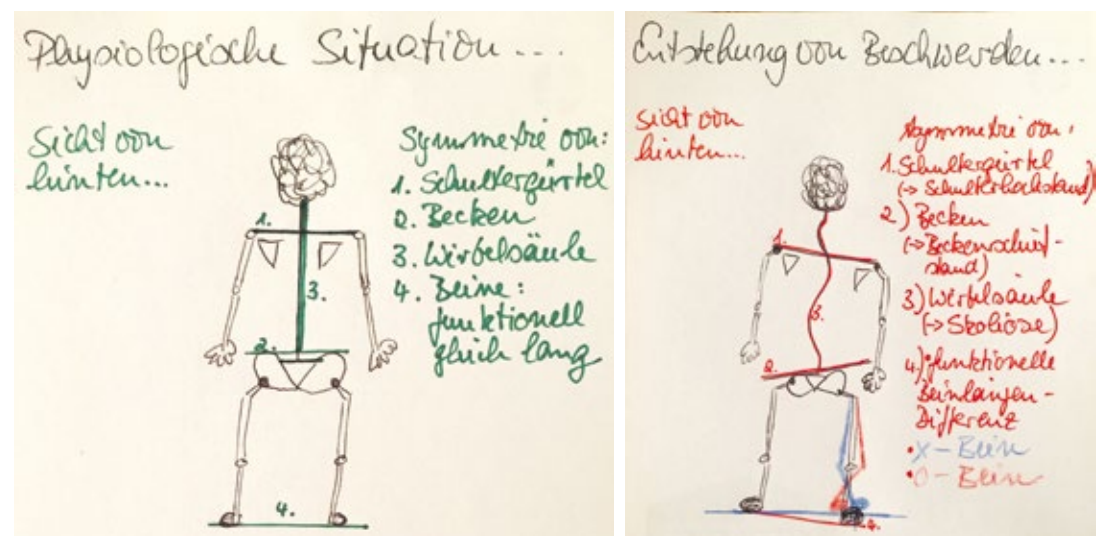 Physiologische Situation...
Sicht von
hinten...
Symmetrie von:
1. Schultergürtel
2. Becken
3. Wirbelsäule
4. Beine:
funktionell
gleich lang
1.
3.
2.
4.
Entstehung von Beschwerden...
Sicht von
hinten...
Asymmetrie von:
1. Schultergürtel
(-> Schulterhochstand)
2) Becken
(-> Beckenschief-
stand)
3) Wirbelsäule
(-> Skoliose)
4) funktionelle
Beinlängen-
Differenz
• X-Bein
• O-Bein
1.
3.
2.
4.